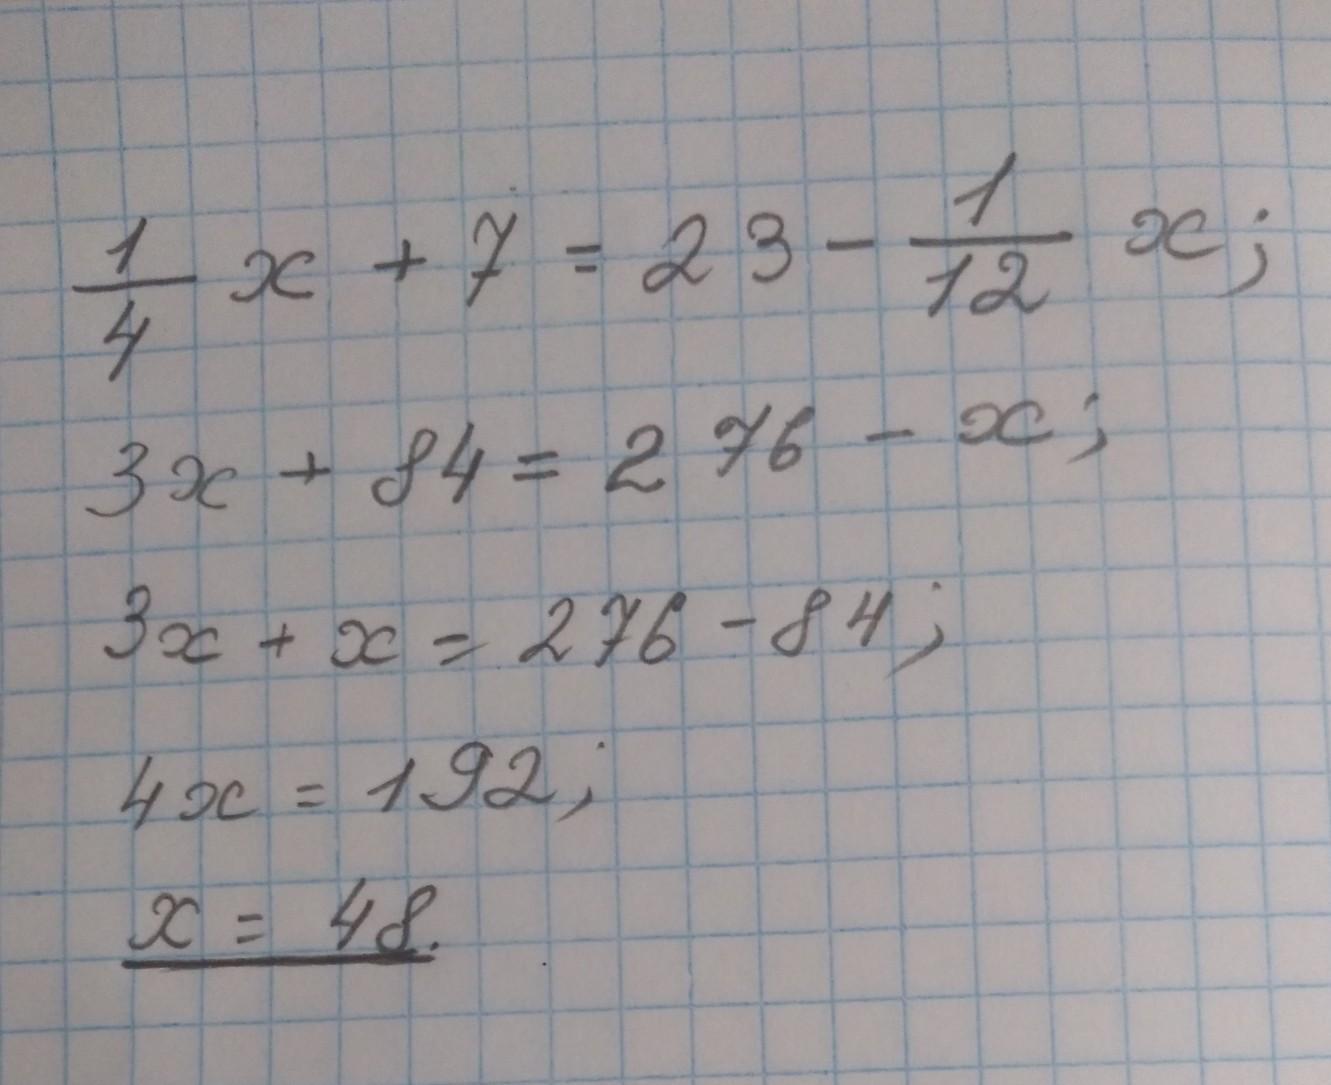 1/4 x + 7 = 23 - 1/12 x;
3x + 84 = 276 - x;
3x + x = 276 - 84;
4x = 192;
x = 48.